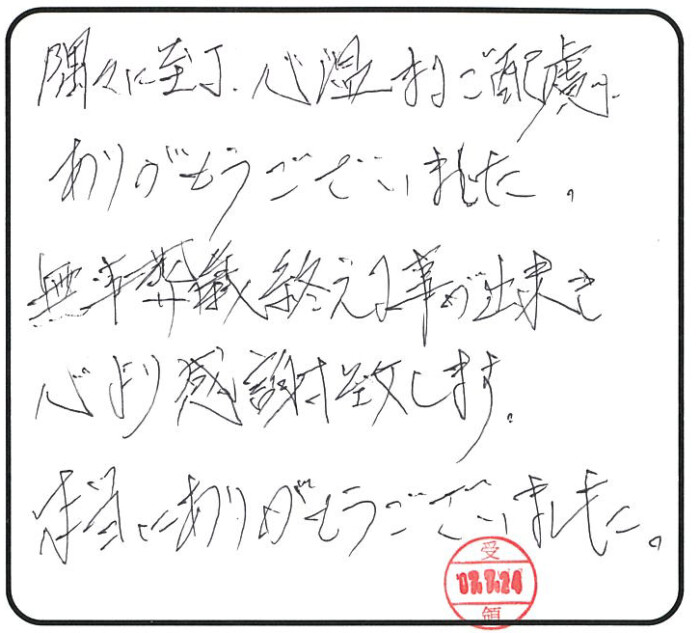 隅々に至る、心温まるご配慮
ありがとうございました。
無事葬儀終える事が出来き
心より感謝致します。
本当にありがとうございました。
受
07.7.24
領